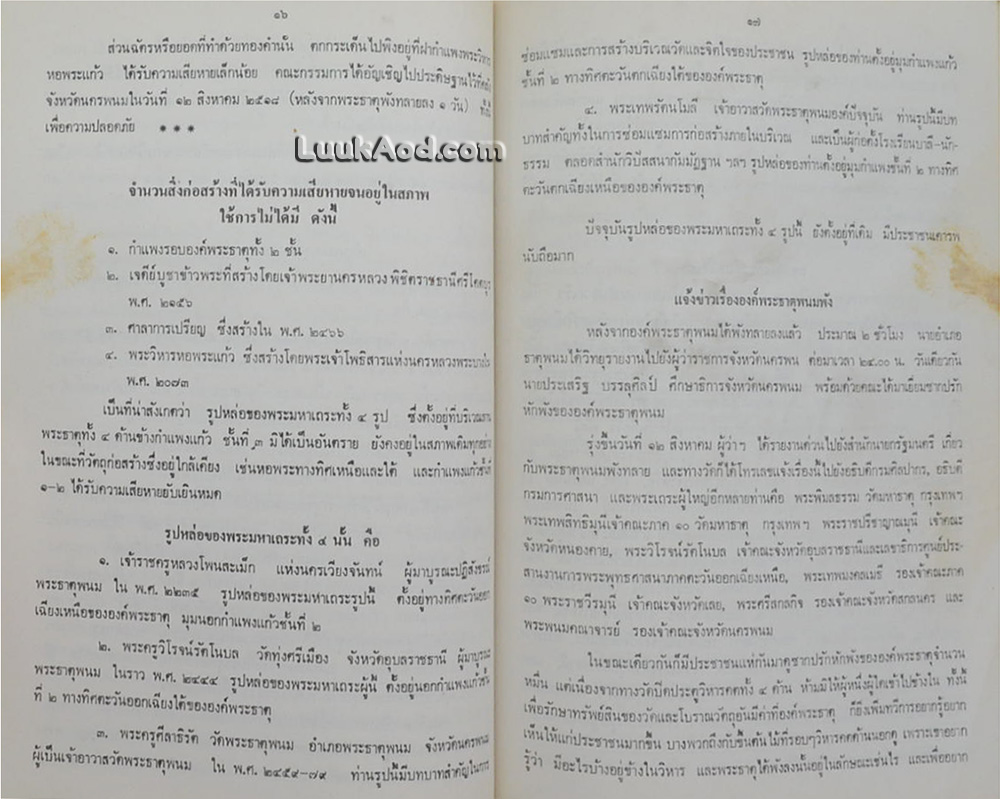 ๑๖
ส่วนฉัตรหรือยอดที่ทำด้วยทองคำนั้น ตกกระเด็นไปพิงอยู่ที่ฝากำแพงพระวิหาร
หอพระแก้ว ได้รับความเสียหายเล็กน้อย คณะกรรมการได้อัญเชิญไปประดิษฐานไว้ที่
จังหวัดนครพนมในวันที่ ๑๒ สิงหาคม ๒๕๑๘ (หลังจากพระธาตุพังทลายลง ๑ วัน) ทั้งนี้
เพื่อความปลอดภัย ***
LuukAod.com
จำนวนสิ่งก่อสร้างที่ได้รับความเสียหายจนอยู่ในสภาพ
ใช้การไม่ได้มี ดังนี้
๑. กำแพงรอบองค์พระธาตุทั้ง ๒ ชั้น
๒. เจดีย์บูชาข้าวพระที่สร้างโดยเจ้าพระยานครหลวง พิชิตราชธานีศรีโคตบูร
พ.ศ. ๒๑๕๖
๓. ศาลาการเปรียญ ซึ่งสร้างใน พ.ศ. ๒๔๖๖
๔. พระวิหารหอพระแก้ว ซึ่งสร้างโดยพระเจ้าโพธิสารแห่งนครหลวงพระบางใน
พ.ศ. ๒๐๗๓
เป็นที่น่าสังเกตว่า รูปหล่อของพระมหาเถระทั้ง ๔ รูป ซึ่งตั้งอยู่ที่บริเวณลาน
พระธาตุทั้ง ๔ ด้านข้างกำแพงแก้ว ชั้นที่ ๓ มิได้เป็นอันตราย ยังคงอยู่ในสภาพเดิมทุกอย่าง
ในขณะที่วัตถุก่อสร้างซึ่งอยู่ใกล้เคียง เช่นหอพระทางทิศเหนือและใต้ และกำแพงแก้วชั้นที่
๑-๒ ได้รับความเสียหายยับเยินหมด
รูปหล่อของพระมหาเถระทั้ง ๔ นั้น คือ
๑. เจ้าราชครูหลวงโพนสะเม็ก แห่งนครเวียงจันทน์ ผู้มาบูรณะปฏิสังขรณ์
พระธาตุพนม ใน พ.ศ. ๒๒๓๕ รูปหล่อของพระมหาเถระรูปนี้ ตั้งอยู่ทางทิศตะวันออก
เฉียงเหนือขององค์พระธาตุ มุมนอกกำแพงแก้วชั้นที่ ๒
๒. พระครูวิโรจน์รัตโนบล วัดทุ่งศรีเมือง จังหวัดอุบลราชธานี ผู้มาบูรณะ
พระธาตุพนม ในราว พ.ศ. ๒๔๔๔ รูปหล่อของพระมหาเถระผู้นี้ ตั้งอยู่นอกกำแพงแก้วชั้น
ที่ ๒ ทางทิศตะวันออกเฉียงใต้ขององค์พระธาตุ
๓. พระครูศีลาธิรัต วัดพระธาตุพนม อำเภอพระธาตุพนม จังหวัดนครพนม
ผู้เป็นเจ้าอาวาสวัดพระธาตุพนม ใน พ.ศ. ๒๔๕๙-๗๙ ท่านรูปนี้มีบทบาทสำคัญในการ
๑๗
ซ่อมแซมและการสร้างบริเวณวัดและจิตใจของประชาชน รูปหล่อของท่านตั้งอยู่มุมกำแพงแก้ว
ชั้นที่ ๒ ทางทิศตะวันตกเฉียงใต้ขององค์พระธาตุ
๔. พระเทพรัตนโมลี เจ้าอาวาสวัดพระธาตุพนมองค์ปัจจุบัน ท่านรูปนี้มีบท
บาทสำคัญทั้งในการซ่อมแซมการก่อสร้างภายในบริเวณ และเป็นผู้ก่อตั้งโรงเรียนบาลี-นัก-
ธรรม ตลอดสำนักวิปัสสนากัมมัฏฐาน ฯลฯ รูปหล่อของท่านตั้งอยู่มุมกำแพงชั้นที่ ๒ ทางทิศ
ตะวันตกเฉียงเหนือขององค์พระธาตุ
ปัจจุบันรูปหล่อของพระมหาเถระทั้ง ๔ รูปนี้ ยังตั้งอยู่ที่เดิม มีประชาชนเคารพ
นับถือมาก
แจ้งข่าวเรื่ององค์พระธาตุพนมพัง
หลังจากองค์พระธาตุพนมได้พังทลายลงแล้ว ประมาณ ๒ ชั่วโมง นายอำเภอ
ธาตุพนมได้วิทยุรายงานไปยังผู้ว่าราชการจังหวัดนครพน ต่อมาเวลา ๒๔.๐๐ น. วันเดียวกัน
นายประเสริฐ บรรลุศิลป์ ศึกษาธิการจังหวัดนครพนม พร้อมด้วยคณะได้มาเยี่ยมซากปรัก
หักพังขององค์พระธาตุพนม
รุ่งขึ้นวันที่ ๑๒ สิงหาคม ผู้ว่าฯ ได้รายงานด่วนไปยังสำนักนายกรัฐมนตรี เกี่ยว
กับพระธาตุพนมพังทลาย และทางวัดก็ได้โทรเลขแจ้งเรื่องนี้ไปยังอธิบดีกรมศิลปากร, อธิบดี
กรมการศาสนา และพระเถระผู้ใหญ่อีกหลายท่านคือ พระพิมลธรรม วัดมหาธาตุ กรุงเทพฯ
พระเทพสิทธิมุนีเจ้าคณะภาค ๑๐ วัดมหาธาตุ กรุงเทพฯ พระราชปรีชาญาณมุนี เจ้าคณะ
จังหวัดหนองคาย, พระวิโรจน์รัตโนบล เจ้าคณะจังหวัดอุบลราชธานีและเลขาธิการศูนย์ประ-
สานงานการพระพุทธศาสนาภาคตะวันออกเฉียงเหนือ, พระเทพมงคลเมธี รองเจ้าคณะภาค
๑๐ พระราชวีรมุนี เจ้าคณะจังหวัดเลย, พระศรีสกลกิจ รองเจ้าคณะจังหวัดสกลนคร และ
พระพนมคณาจารย์ รองเจ้าคณะจังหวัดนครพนม
ในขณะเดียวกันก็มีประชาชนแห่กันมาดูซากปรักหักพังขององค์พระธาตุจำนวน
หมื่น แต่เนื่องจากทางวัดปิดประตูวิหารคดทั้ง ๔ ด้าน ห้ามมิให้ผู้หนึ่งผู้ใดเข้าไปข้างใน ทั้งนี้
เพื่อรักษาทรัพย์สินของวัดและโบราณวัตถุอันมีค่าที่องค์พระธาตุ ก็ยิ่งเพิ่มทวีการอยากรู้อยาก
เห็นให้แก่ประชาชนมากขึ้น บางพวกถึงกับขึ้นต้นไม้ที่รอบๆวิหารคดด้านนอกดู เพราะเขาอยาก
รู้ว่า มีอะไรบ้างอยู่ข้างในวิหาร และพระธาตุได้พังลงนั้นอยู่ในลักษณะเช่นไร และเพื่ออยาก